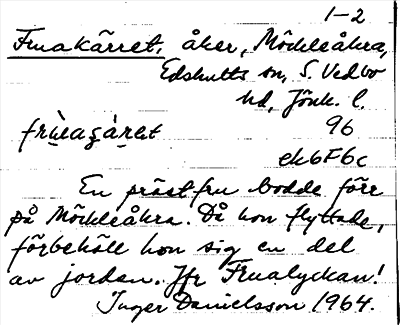 1-2
Fruakärret, åker, Möckleåkra,
Edshults sn, S. Vedbo
hd, Jönk. l.
frùagą̀ret 96
ek6F6c
En prästfru bodde förr
på Möckleåkra. Då hon flyttade,
förbehöll hon sig en del
av jorden. Jfr Frualyckan!
Inger Danielsson 1964.